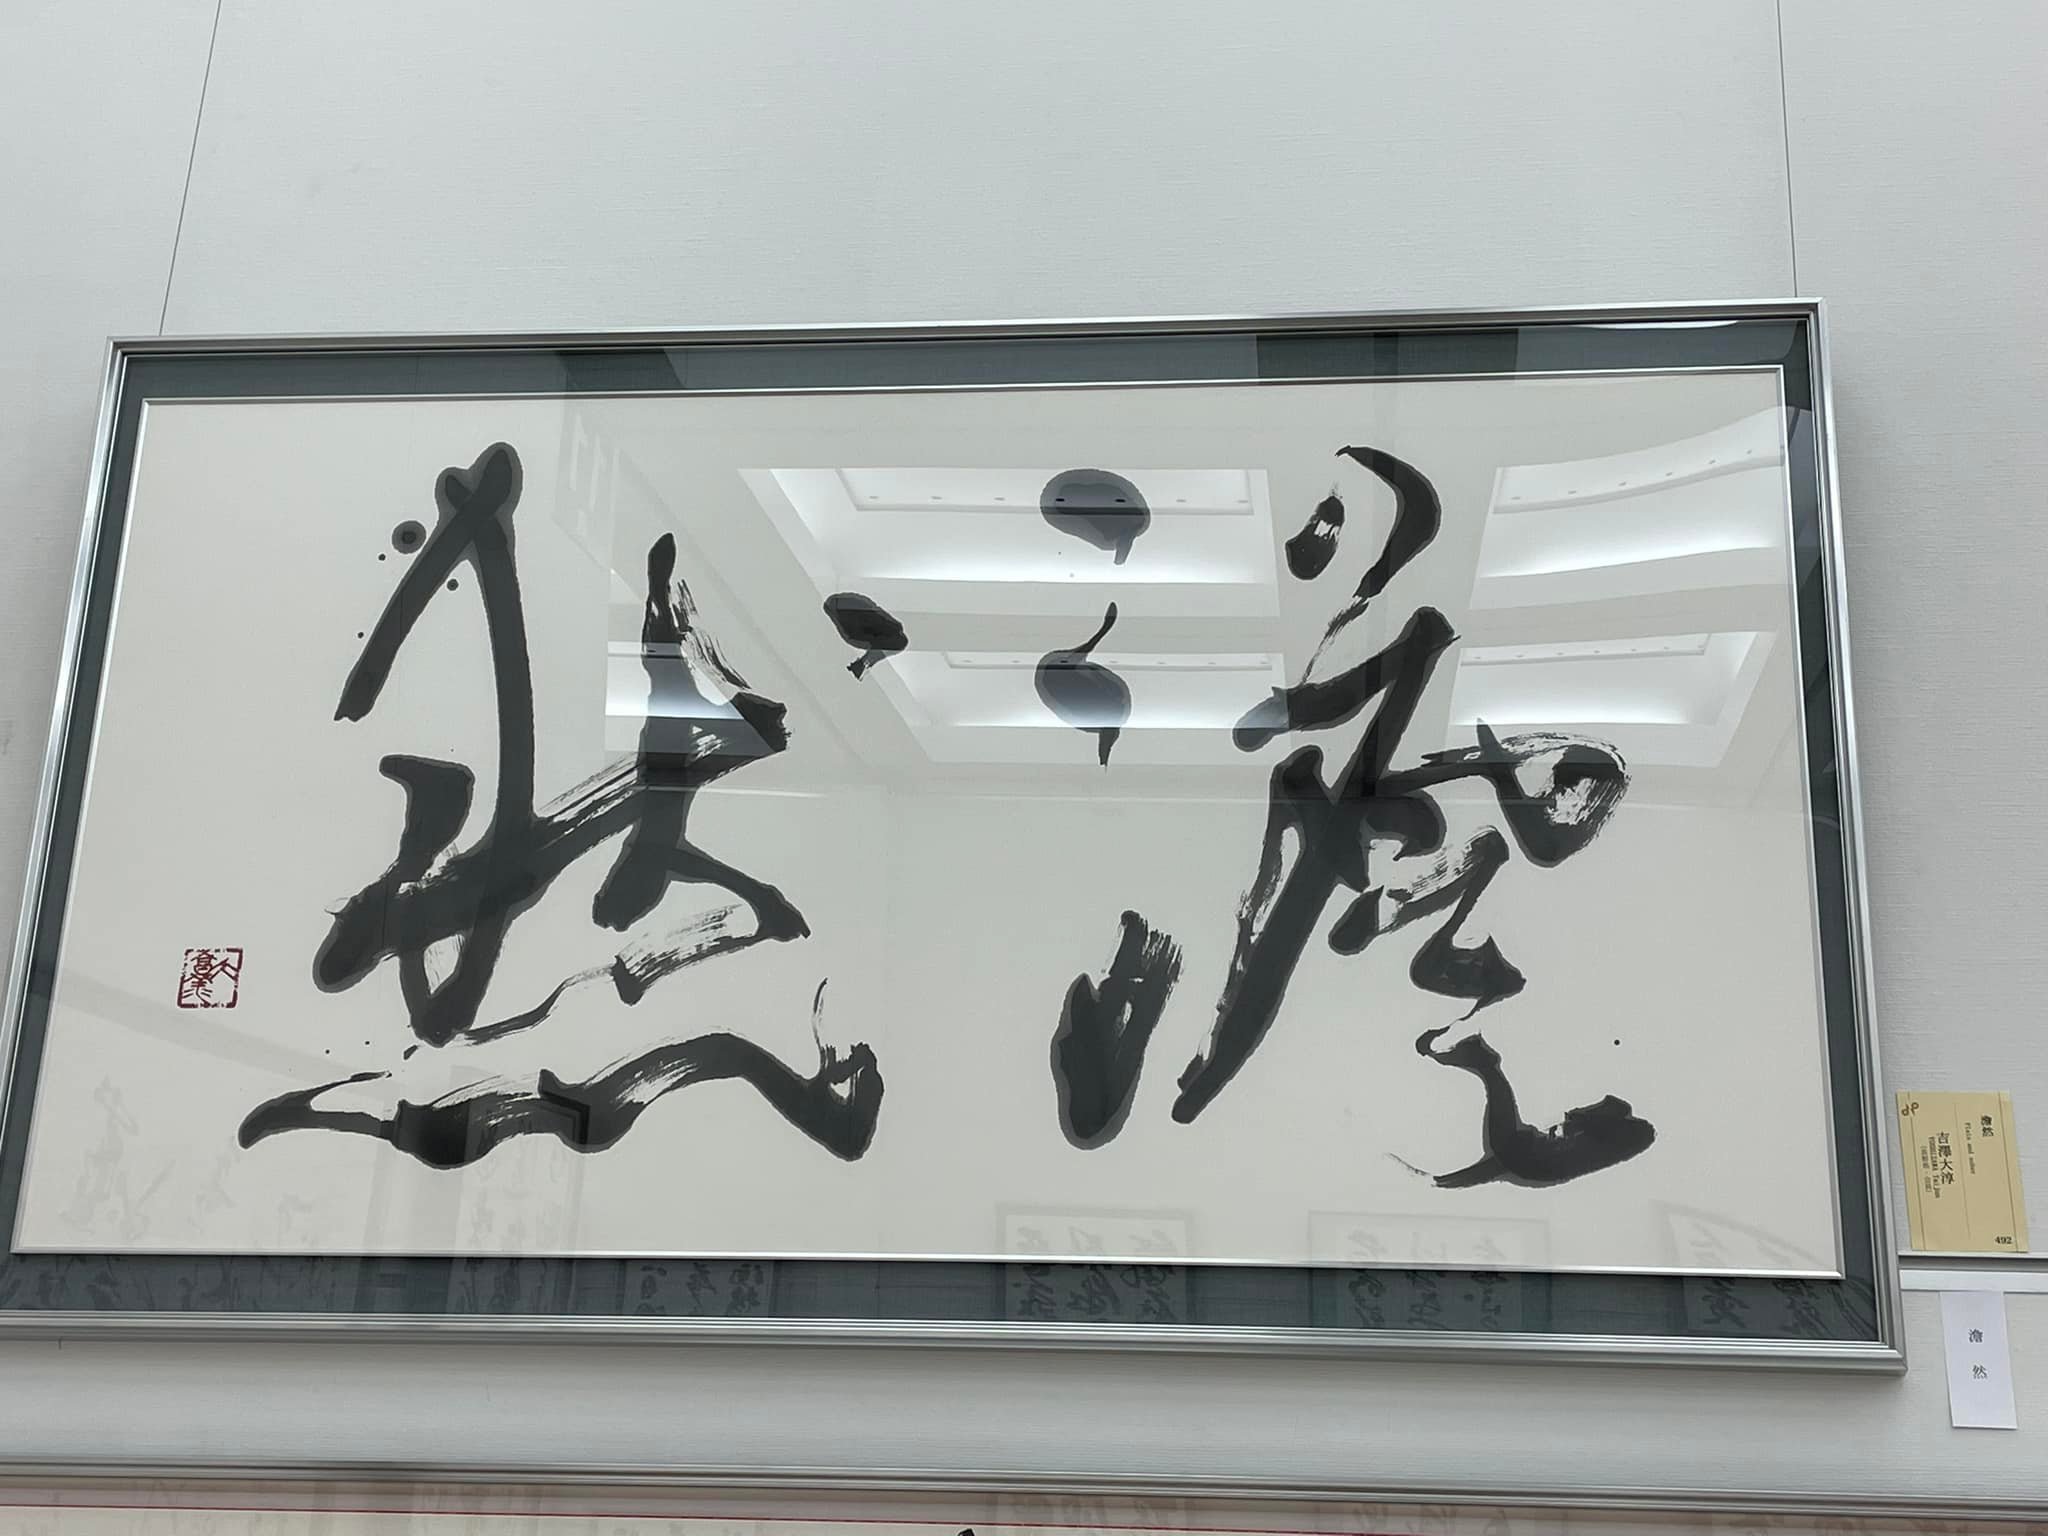 澹然
澹然
Plain and sober
吉澤大淳
YOSHIZAWA Taijun
492
澹然